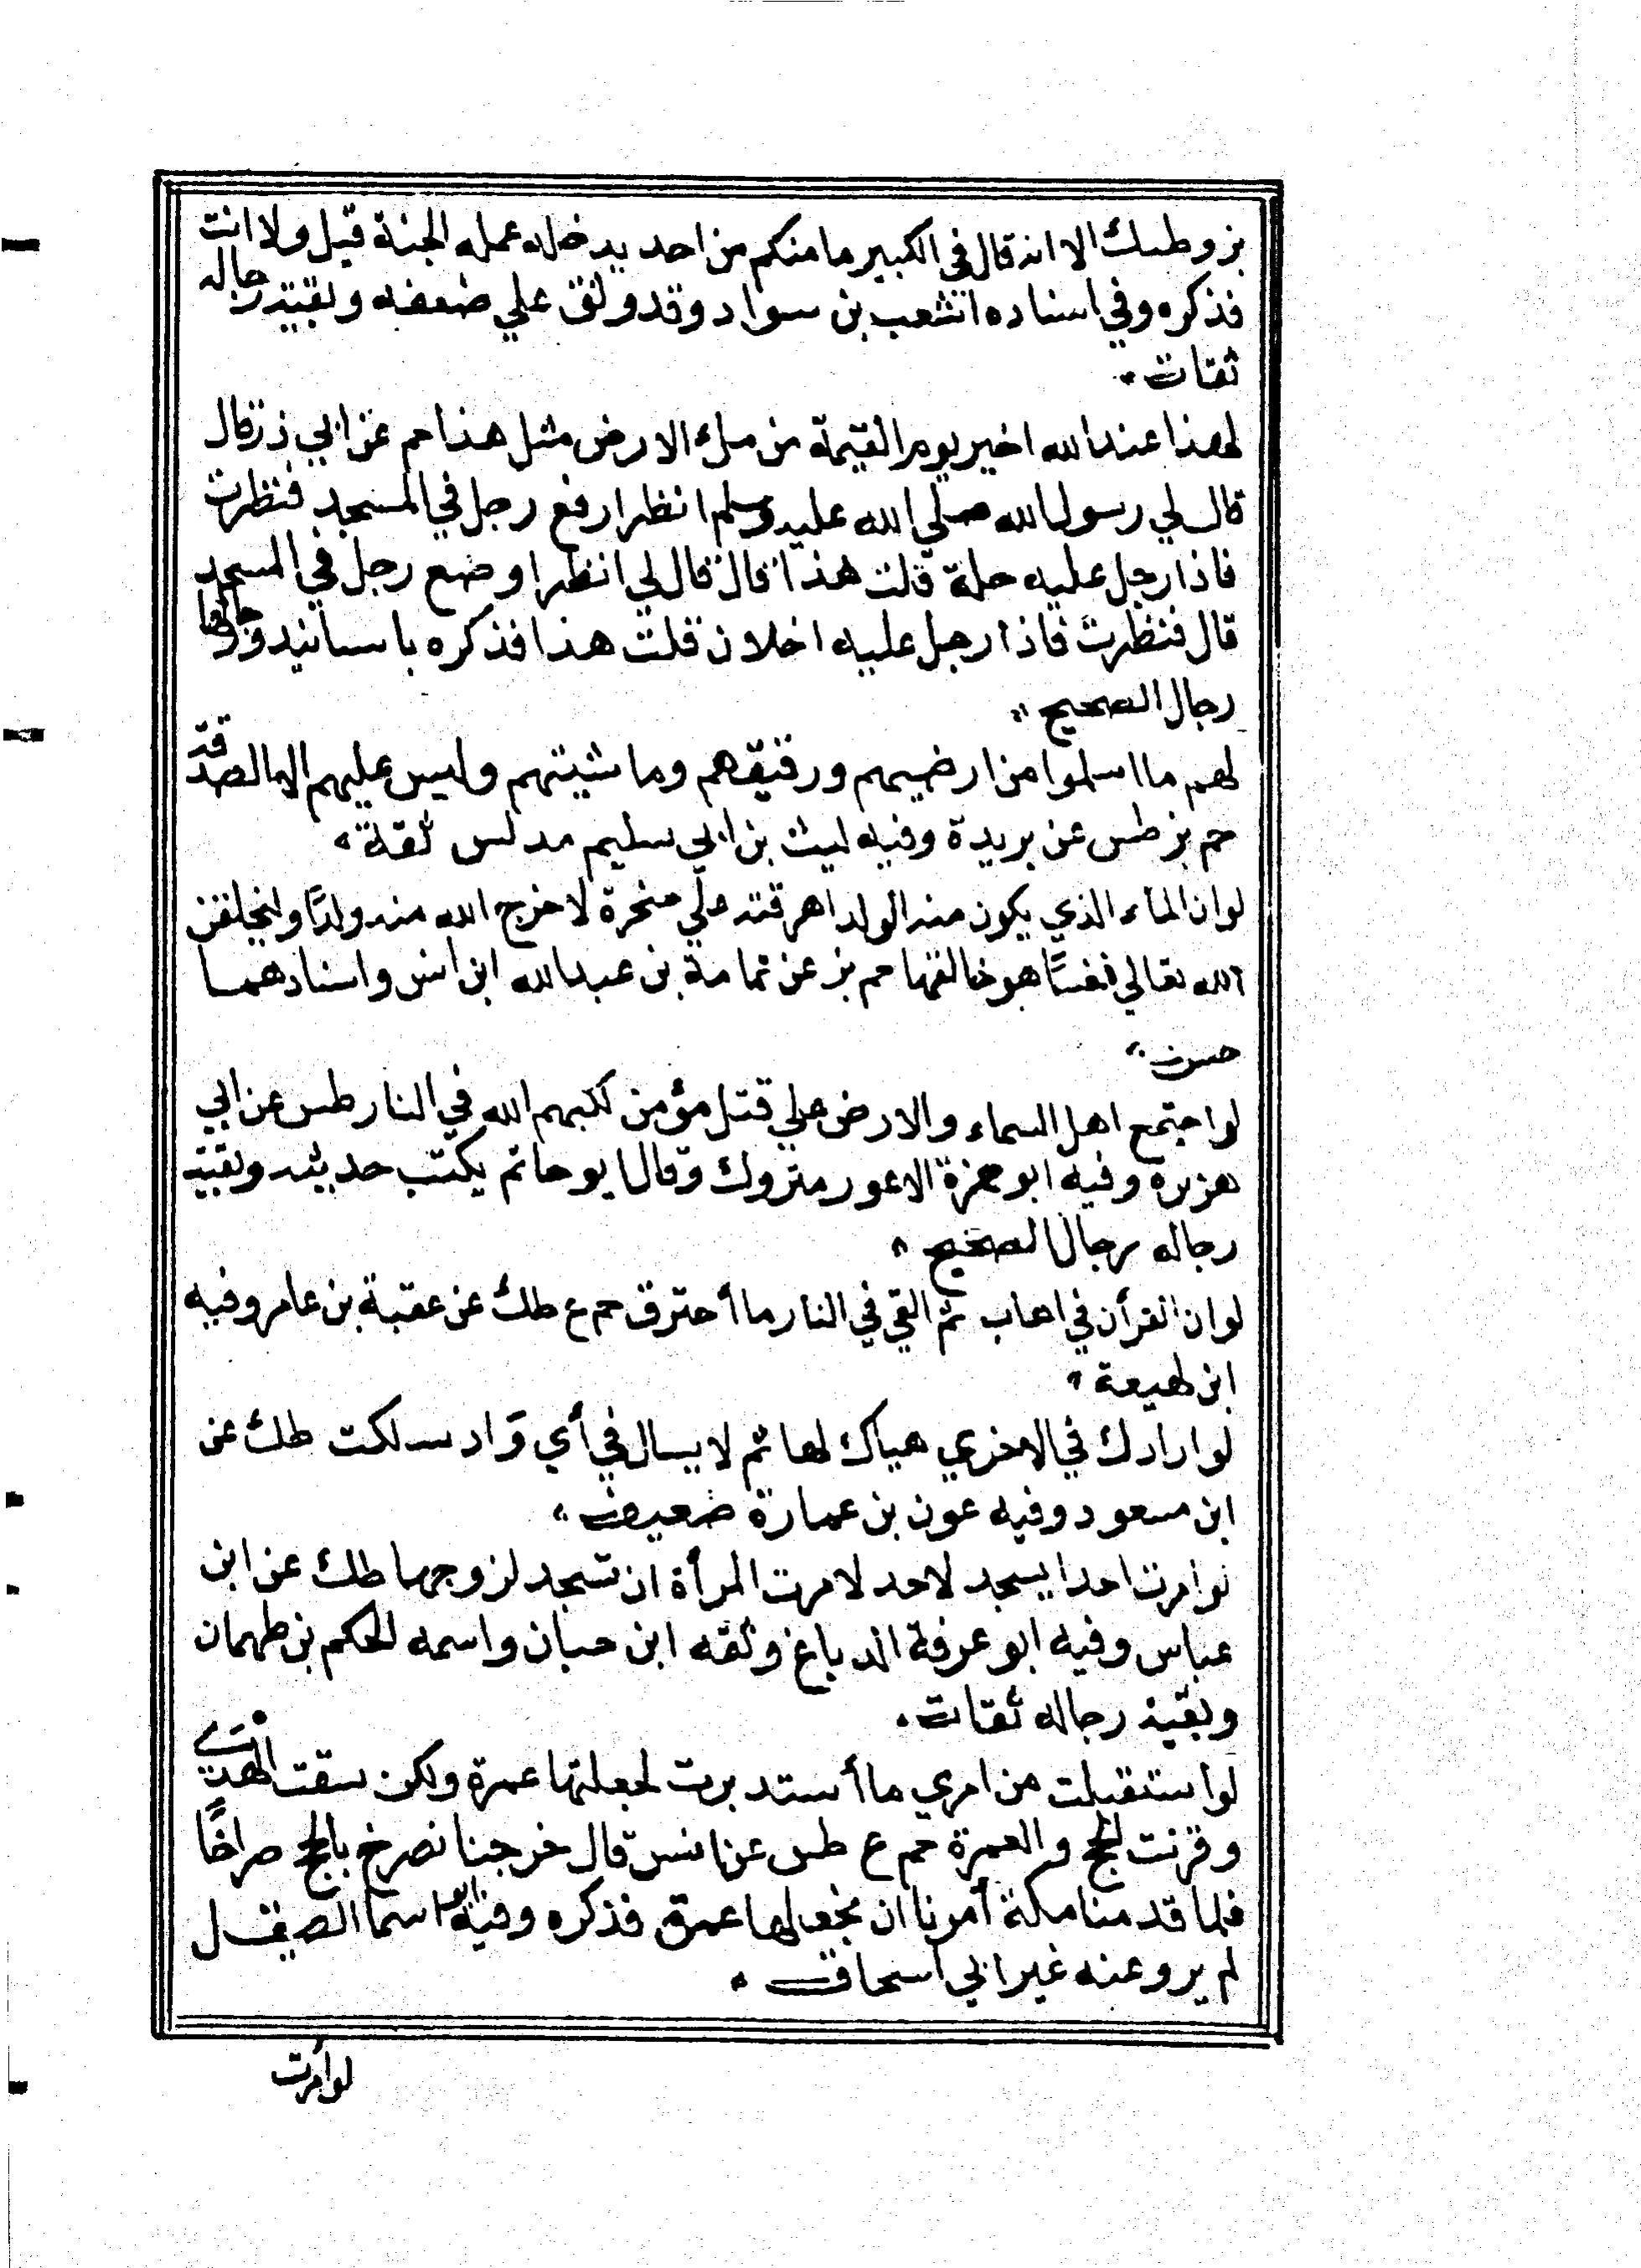 بز وطك الا انه قال في الكبير ما منكم من احد يدخله عمله الجنة قيل ولا انت
فذكره وفي اسناده اشعب بن سواد وقد وثق علي ضعفه وبقية رجاله
ثقات
لهذا عند الله اخير يوم القيمة من ملء الارض مثل هذا حم عن ابي ذر قال
قال لي رسول الله صلي الله عليه وسلم انظر ارفع رجل في المسجد فنظرت
فاذا رجل عليه حلة قلت هذا قال قال لي انظر اوضع رجل في المسجد
قال فنظرت فاذا رجل عليه اخلاق قلت هذا فذكره باسانيد ورجالها
رجال الصحيح
لهم ما اسلموا من ارضيهم ورقيقهم وماشيتهم وليس عليهم الا الصدقة
حم بز طس عن بريدة وفيه ليث بن ابي سليم مدلس ثقة
لو ان الماء الذي يكون منه الولد اهرقته علي صخرة لاخرج الله منه ولدًا وليخلقن
الله تعالي نفسًا هو خالقها حم بز عن ثمامة بن عبد الله ابن انس واسنادهما
حسن
لو اجتمع اهل السماء والارض علي قتل مؤمن لكبهم الله في النار طس عن ابي
هريرة وفيه ابو حمزة الاعور متروك وقال ابو حاتم يكتب حديثه وبقية
رجاله رجال الصحيح
لو ان القرأن في اهاب ثم القي في النار ما أحترق حم ع طك عن عقبة بن عامر وفيه
ابن لهيعة
لو ارادك في الاخري هياك لها ثم لا يسال في أي واد سلكت طك عن
ابن مسعود وفيه عون بن عمارة ضعيف
لو امرت احدا يسجد لاحد لامرت المرأة ان تسجد لزوجها طك عن ابن
عباس وفيه ابو عرفة الدباغ وثقه ابن حبان واسمه الحكم بن طهمان
وبقية رجاله ثقات
لو استقبلت من امري ما أستدبرت لجعلتها عمرة ولكن سقت الهدي
وقرنت الحج والعمرة حم ع طس عن انس قال خرجنا نصرخ بالحج صراخًا
فلما قدمنا مكة أمرنا ان نجعلها عمرة فذكره وفيه ابو اسما الصيقل
لم يرو عنه غير ابي اسحاق
لو أمرت